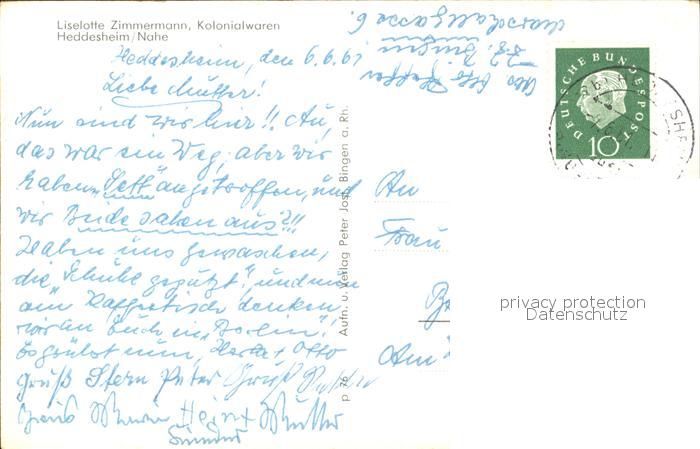 Liselotte Zimmermann, Kolonialwaren
Heddesheim/Nahe
Heddesheim, den 6.6.61
Liebe Mutter!
Nun sind wir hier!! Au,
das war ein Weg, aber wir
haben "Sett" angetroffen, und
wir Beide sahen aus?!!
Haben uns gewaschen,
die Schuhe geputzt, und
am Kaffeetisch denken
wir an Euch in "Berlin"!
Es grüßt nun, Herta + Otto
Gruß Stern Peter Gruß
Gruß Heinz Müller
Aufn. u. Verlag Peter Josh, Bingen a. Rh.
p 76
Otto
z.Z. Bingen
6
DEUTSCHE BUNDESPOST
10
An
Frau
Am
privacy protection
Datenschutz